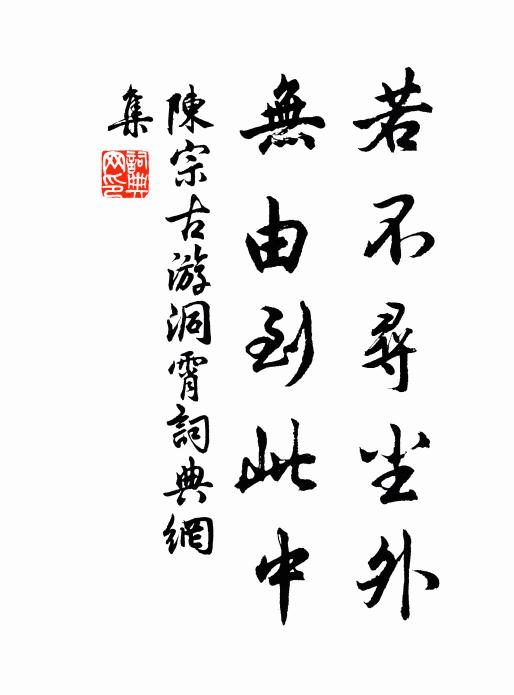 若不尋尘外
無由到此中
陳宗古游洞霄詞典網
集
詞典網印